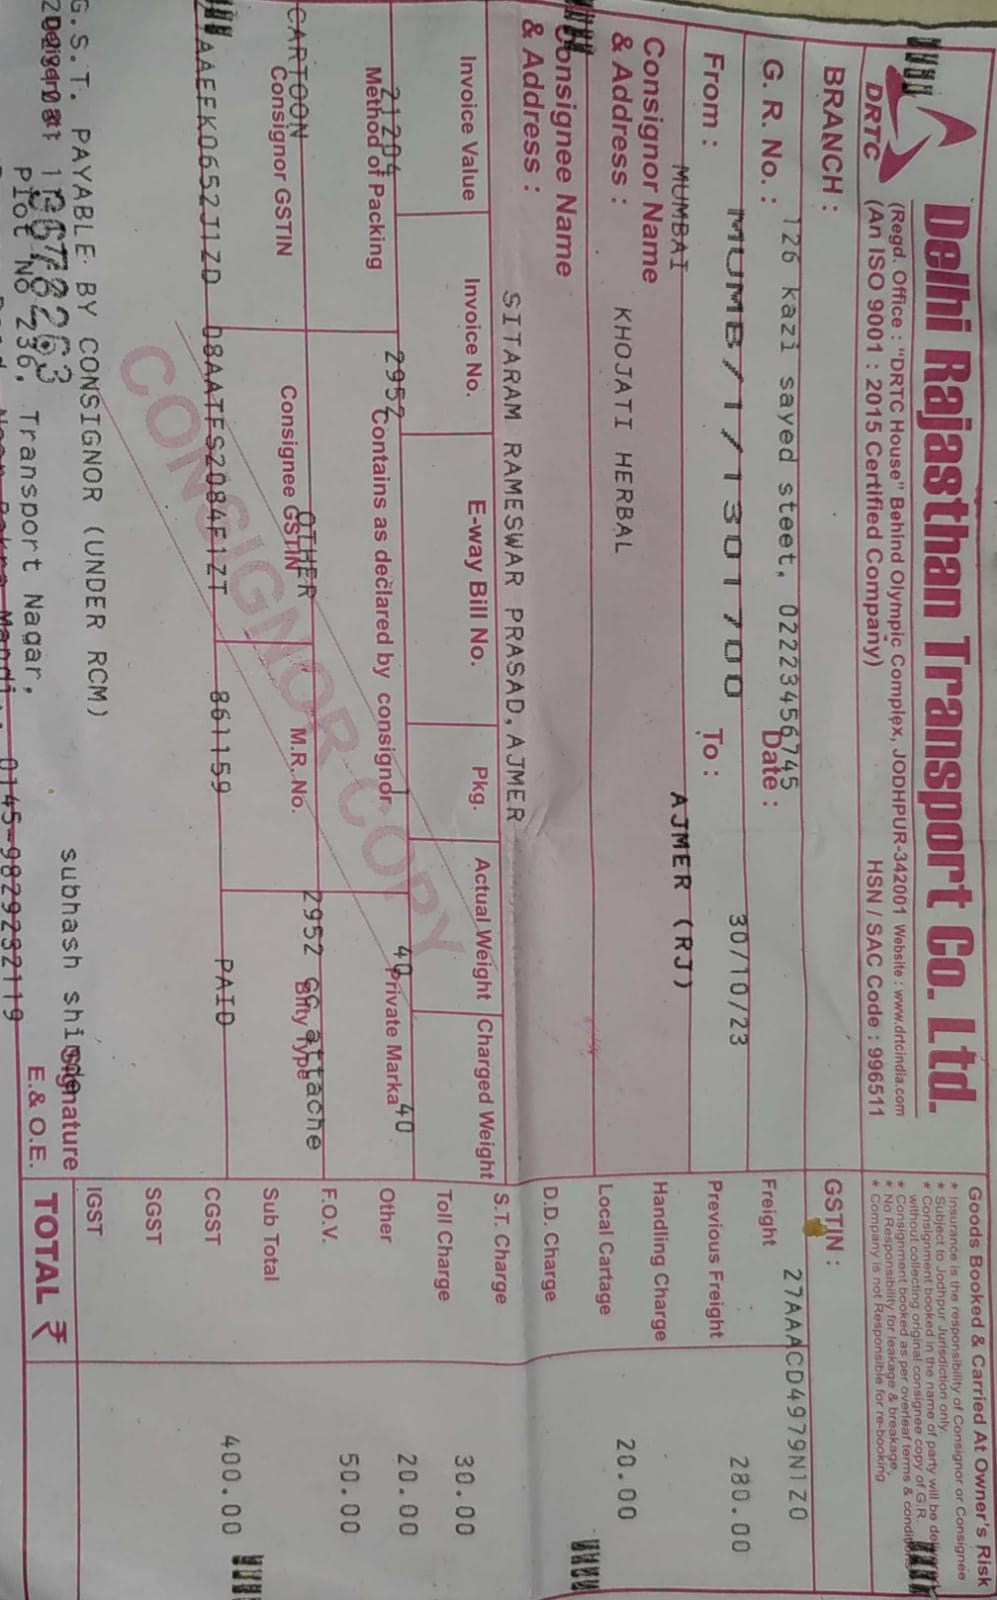 Delhi Rajasthan Transport Co. Ltd.
DRTC
(Regd. Office : "DRTC House" Behind Olympic Complex, JODHPUR-342001 Website : www.drtcindia.com
(An ISO 9001 : 2015 Certified Company) HSN / SAC Code : 996511
Goods Booked & Carried At Owner's Risk
* Insurance is the responsibility of Consignor or Consignee
* Subject to Jodhpur Jurisdiction only.
* Consignment booked in the name of party will be
without collecting original consignee copy of G.R.
* Consignment booked as per overleaf terms &
* No Responsibility for leakage & breakage.
* Company is not Responsible for re-booking
BRANCH :
GSTIN :
126 kazi sayed steet, 02223456745
27AAACD4979N1ZO
G. R. No. : Date :
MUMB/1/1301700 30/10/23
From : To :
MUMBAI AJMER (RJ)
Consignor Name
& Address :
KHOJATI HERBAL
Consignee Name
& Address :
SITARAM RAMESWAR PRASAD,AJMER
Invoice Value Invoice No. E-way Bill No. Pkg. Actual Weight Charged Weight
21204 2952 1 40 40
Method of Packing Contains as declared by consignor Private Marka
CARTOON OTHER 2952 cc attache
Consignor GSTIN Consignee GSTIN M.R. No. Bilty Type
AAEFK0652J1ZD 08AATFS2084F1ZT 861159 PAID
CONSIGNOR COPY
G.S.T. PAYABLE BY CONSIGNOR (UNDER RCM)
Plot No 236, Transport Nagar,
0145-9829232119
subhash shinde
Signature
E.& O.E.
Freight 280.00
Previous Freight
Handling Charge
Local Cartage 20.00
D.D. Charge
S.T. Charge
Toll Charge 30.00
Other 20.00
F.O.V. 50.00
Sub Total
CGST 400.00
SGST
IGST
TOTAL ₹